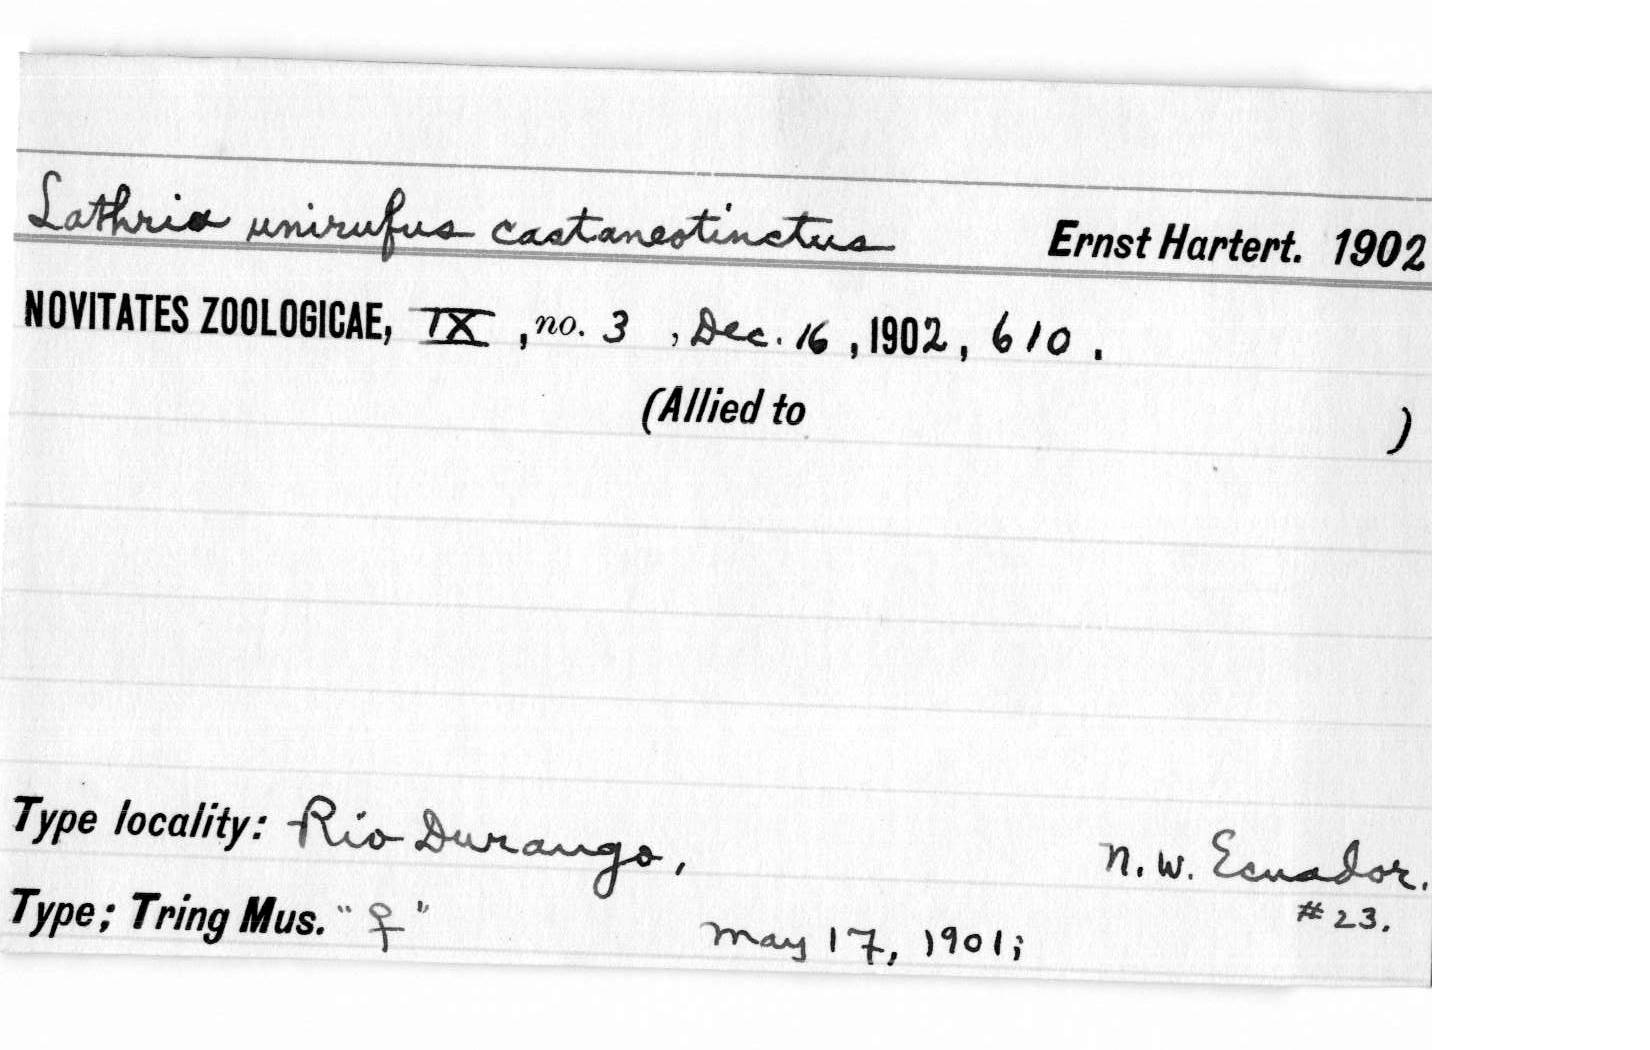 Lathria unirufus castaneotinctus Ernst Hartert. 1902
NOVITATES ZOOLOGICAE, IX, no. 3, Dec. 16, 1902, 610.
(Allied to )
Type locality: Rio Durango, N. W. Ecuador.
Type; Tring Mus. "♀" May 17, 1901; #23.